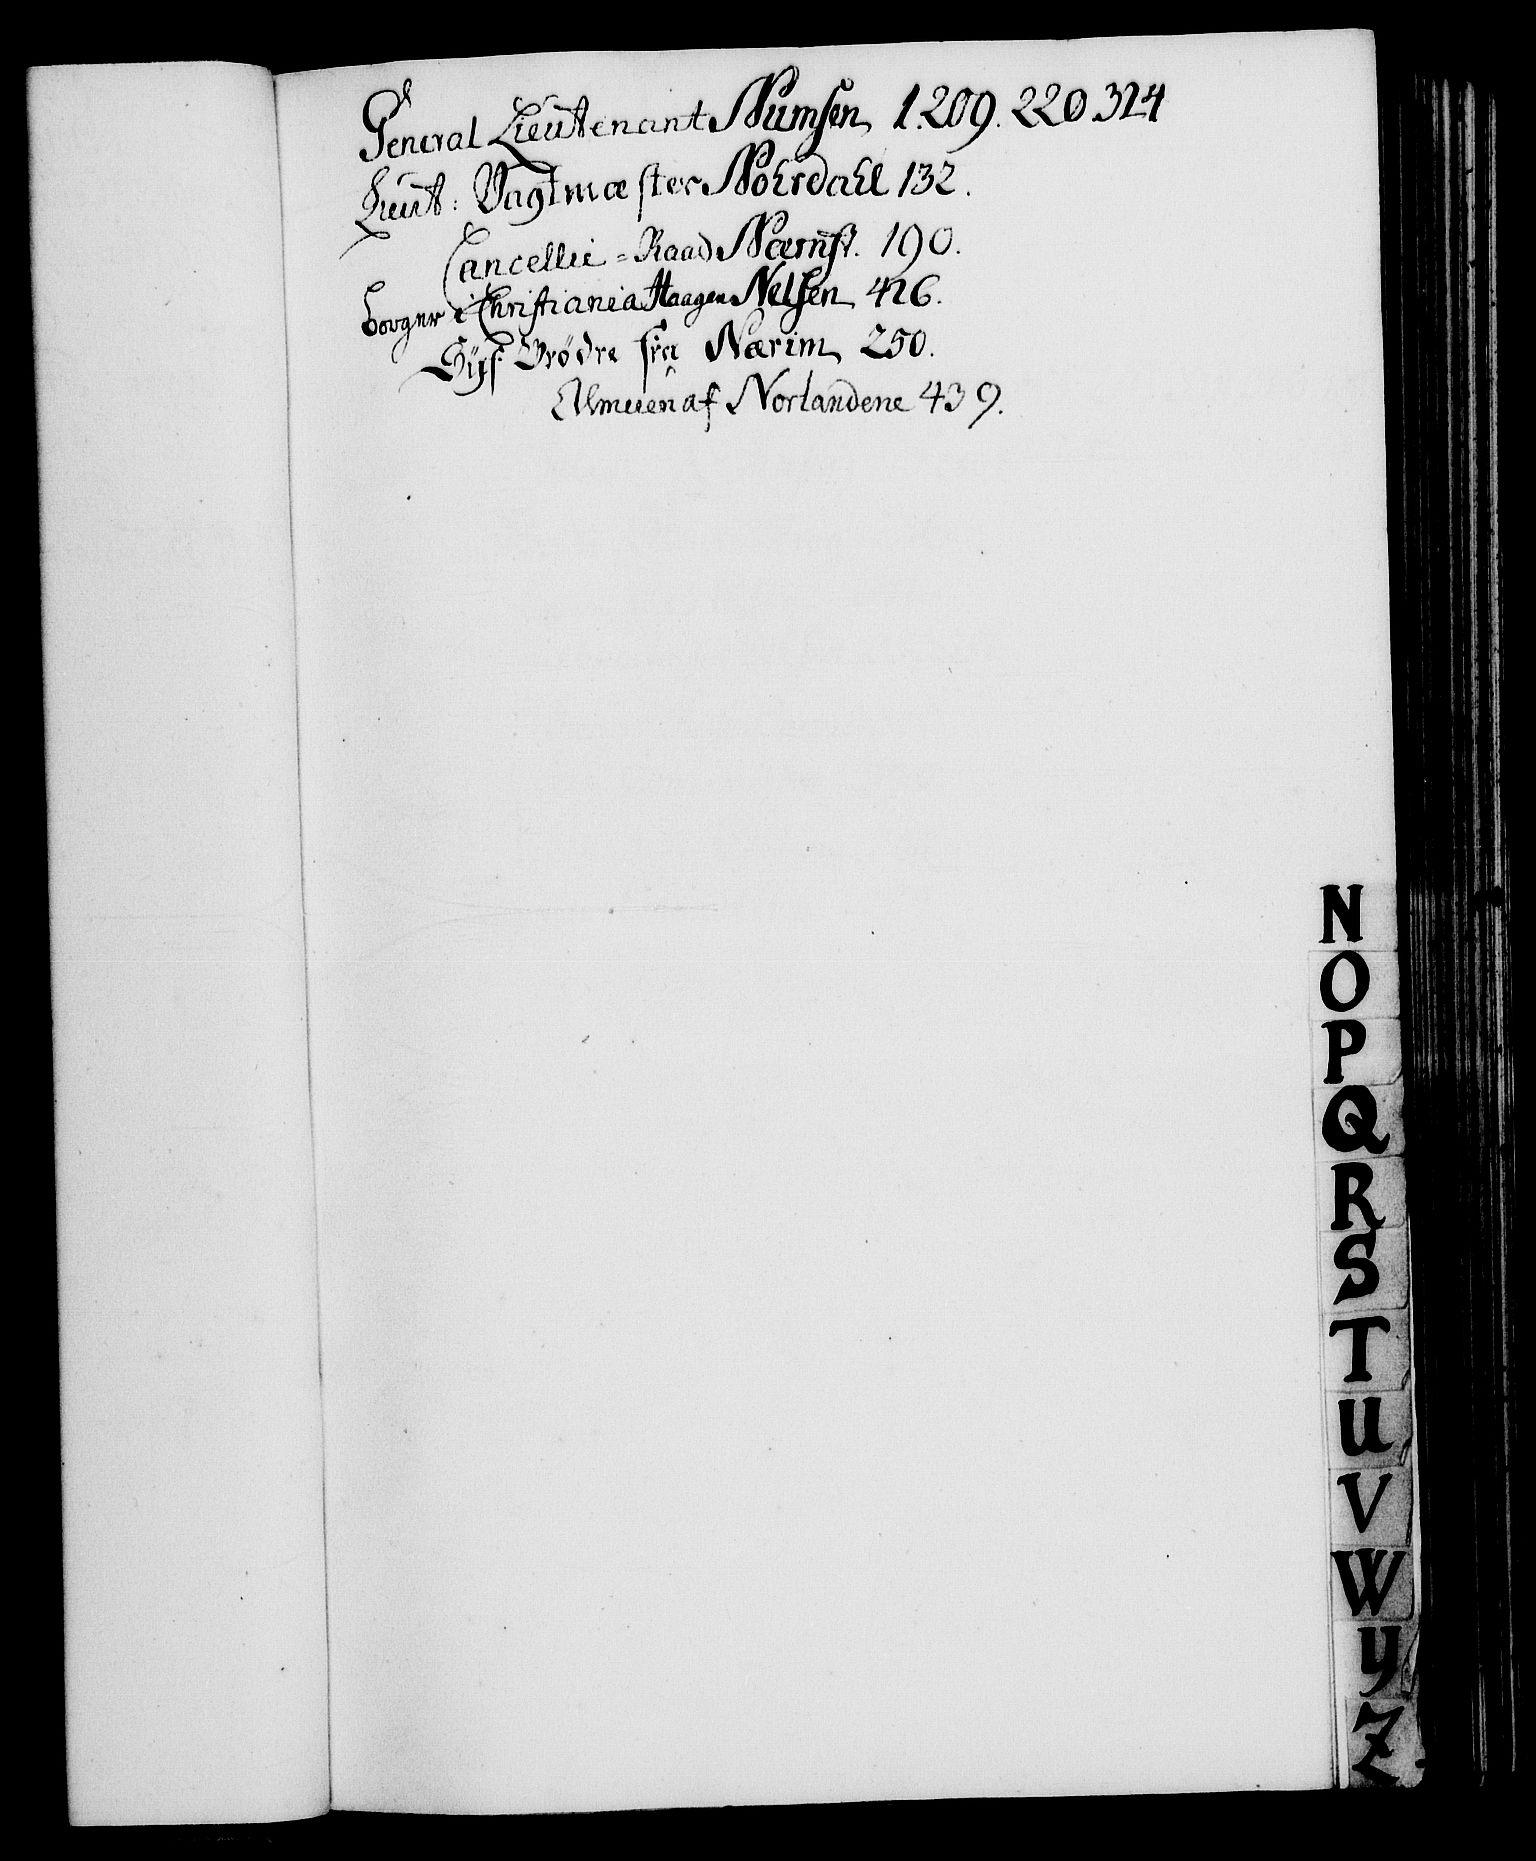 General Lieutenant Numsen 1. 209. 220. 324
Lieut: Vagtmæster Nohrdahl 132.
Cancellie=Raad Nærnst. 190.
borger i Christiania Haagen Nelsen 426.
Brødre fra Nærim 250.
Almuen af Norlandene 439.
N
O
P
Q
R
S
T
U
V
W
Y
Z